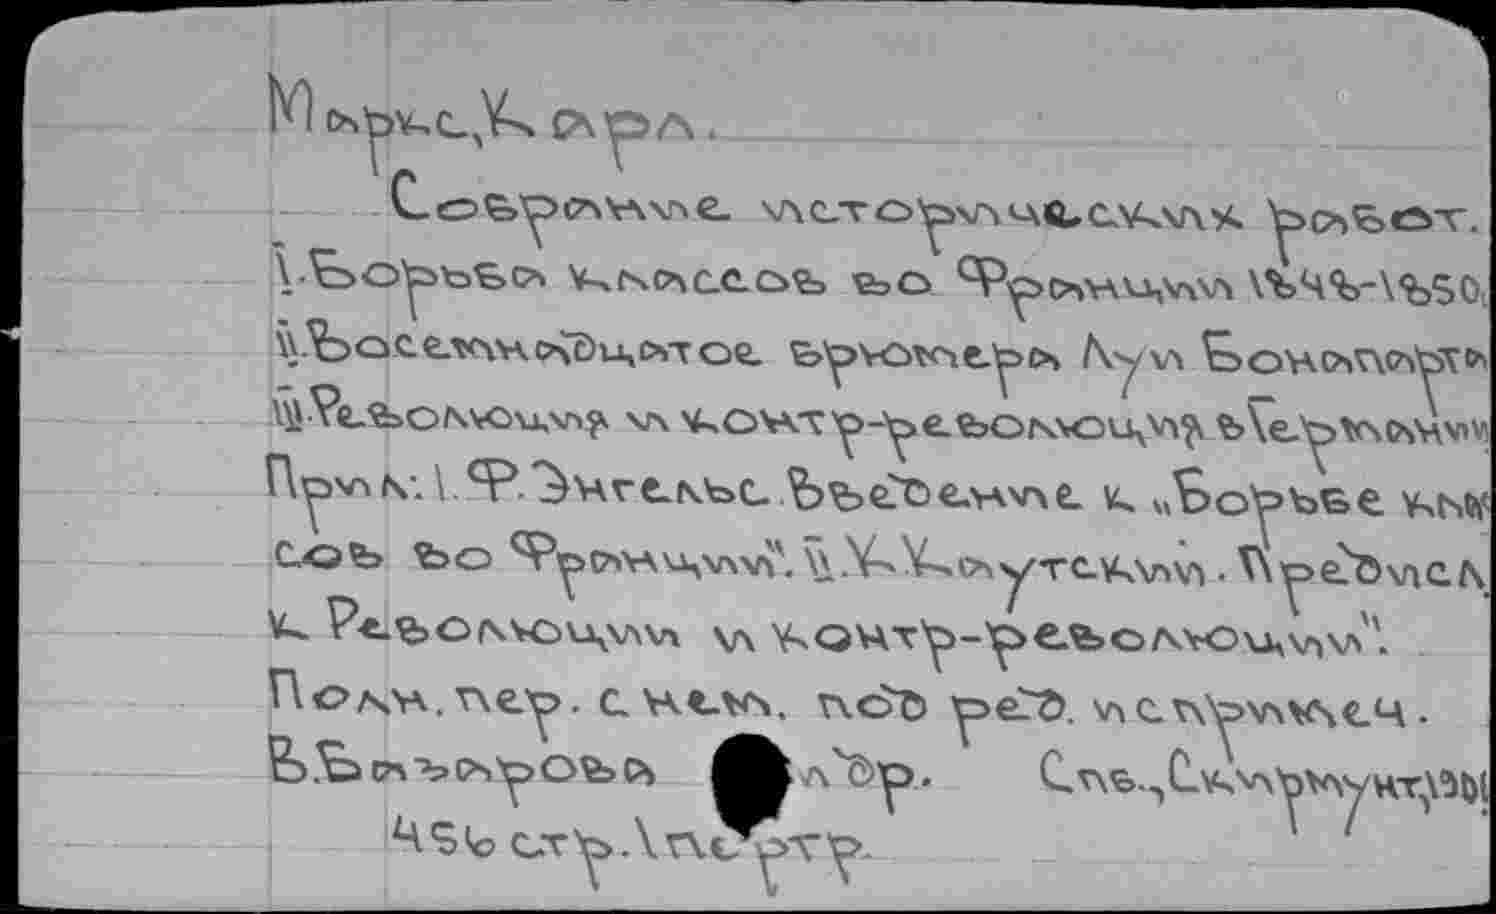 Маркс, Карл.
Собрание исторических работ.
I. Борьба классов во Франции 1848-1850,
II. Восемнадцатое брюмера Луи Бонапарта
III. Революция и контр-революция в Германии
Прил: 1. Ф. Энгельс. Введение к „Борьбе клас
сов во Франции". II. К. Каутский. Предисл.
к Революции и контр-революции".
Полн. пер. с нем. под ред. и с примеч.
В. Базарова и др. Спб., Скирмунт,
456 стр. 1 портр.